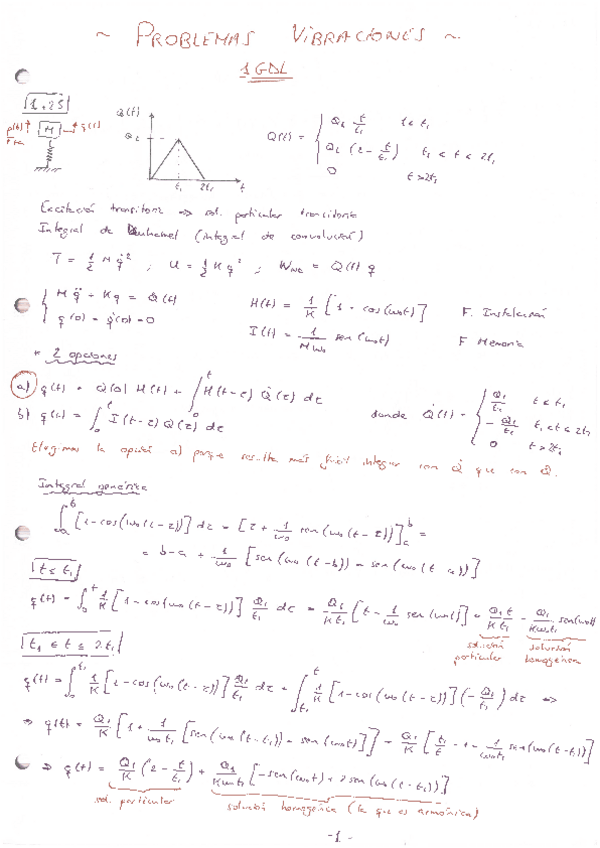 ~ PROBLEMAS VIBRACIONES ~
1 GDL
1.25
M q(t)
Q(t)
Q₁
t₁ 2t₁ t
Q(t) = { Q₁ t/t₁ t<t₁
Q₁ (2 - t/t₁) t₁ < t < 2t₁
0 t>2t₁
Excitación transitoria => sol. particular transitoria
Integral de Duhamel (integral de convolución)
T = 1/2 M q̇² ; U = 1/2 K q² ; W = Q(t) q
{ M q̈ + Kq = Q(t)
q(0) = q̇(0) = 0
H(t) = 1/K [1 - cos(ω₀t)] F. Instalación
I(t) = 1/(Mω₀) sen(ω₀t) F Memoria
* 2 opciones
a) q(t) = Q(0) H(t) + ∫₀ᵗ H(t-τ) Q̇(τ) dτ
b) q(t) = ∫₀ᵗ I(t-τ) Q(τ) dτ
donde Q̇(t) = { Q₁/t₁ t<t₁
- Q₁/t₁ t₁<t<2t₁
0 t>2t₁
Elegimos la opción a) porque resulta más fácil integrar con Q̇ que con Q.
Integral genérica
∫ₐᵇ [1-cos(ω₀(t-τ))] dτ = [τ + 1/ω₀ sen(ω₀(t-τ))]ₐᵇ =
= b-a + 1/ω₀ [sen(ω₀(t-b)) - sen(ω₀(t-a))]
t ≤ t₁
q(t) = ∫₀ᵗ 1/K [1-cos(ω₀(t-τ))] Q₁/t₁ dτ = Q₁/(Kt₁) [t - 1/ω₀ sen(ω₀t)] = Q₁t/(Kt₁) - Q₁/(Kω₀t₁) sen(ω₀t)
solución particular solución homogénea
t₁ ≤ t ≤ 2t₁
q(t) = ∫₀^t₁ 1/K [1-cos(ω₀(t-τ))] Q₁/t₁ dτ + ∫_t₁^t 1/K [1-cos(ω₀(t-τ))] (-Q₁/t₁) dτ =>
=> q(t) = Q₁/K [1 + 1/(ω₀t₁) [sen(ω₀(t-t₁)) - sen(ω₀t)]] - Q₁/K [t/t₁ - 1 - 1/(ω₀t₁) sen(ω₀(t-t₁))]
=> q(t) = Q₁/K (2 - t/t₁) + Q₁/(Kω₀t₁) [-sen(ω₀t) + 2sen(ω₀(t-t₁))]
sol. particular solución homogénea (la que es armónica)
-1-